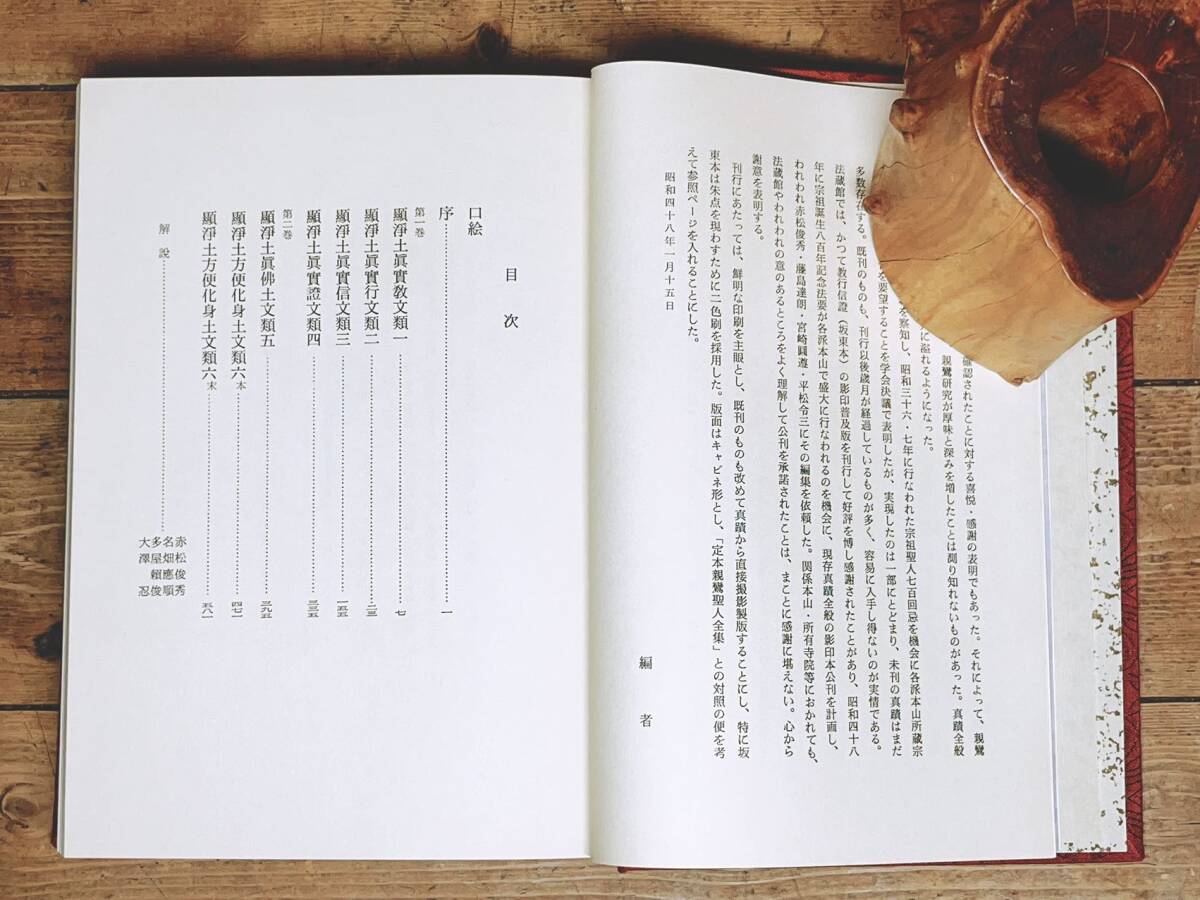 確認されたことに対する喜悦・感謝の表明でもあった。それによって、親鸞
親鸞研究が厚味と深みを増したことは測り知れないものがあった。真蹟全般
に溢れるようになった。
を察知し、昭和三十六・七年に行なわれた宗祖聖人七百回忌を機会に各派本山所蔵宗
を要望することを学会決議で表明したが、実現したのは一部にとどまり、未刊の真蹟はまだ
多数存在する。既刊のものも、刊行以後歳月が経過しているものが多く、容易に入手し得ないのが実情である。
法蔵館では、かつて教行信證(坂東本)の影印普及版を刊行して好評を博し感謝されたことがあり、昭和四十八
年に宗祖誕生八百年記念法要が各派本山で盛大に行なわれるのを機会に、現存真蹟全般の影印本公刊を計画し、
われわれ赤松俊秀・藤島達朗・宮崎圓遵・平松令三にその編集を依頼した。関係本山・所有寺院等におかれても、
法蔵館やわれわれの意のあるところをよく理解して公刊を承諾されたことは、まことに感謝に堪えない。心から
謝意を表明する。
刊行にあたっては、鮮明な印刷を主眼とし、既刊のものも改めて真蹟から直接撮影製版することにし、特に坂
東本は朱点を現わすために二色刷を採用した。版面はキャビネ形とし、「定本親鸞聖人全集」との対照の便を考
えて参照ページを入れることにした。
昭和四十八年一月十五日
編者
目次
口絵
序……一
第一巻
顯淨土眞實教文類一……七
顯淨土眞實行文類二……二三
顯淨土眞實信文類三……一五五
顯淨土眞實證文類四……三三五
第二巻
顯淨土眞佛土文類五……三九五
顯淨土方便化身土文類六本……四七一
顯淨土方便化身土文類六末……五八一
解説……
赤松俊秀
名畑應順
多屋頼俊
大澤忍